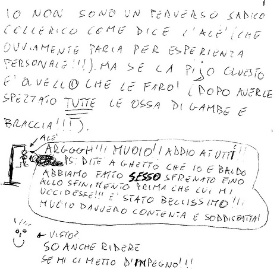 IO NON SONO UN PERVERSO SADICO
COLLERICO COME DICE L'ALE' (CHE
OVVIAMENTE PARLA PER ESPERIENZA
PERSONALE!!!). MA SE LA PIJO QUESTO
E' QUELLO CHE LE FARO! (DOPO AVERLE
SPEZZATO TUTTE LE OSSA DI GAMBE E
BRACCIA!!!).
ALE'
ARGOGH!!! MUOIO!! ADDIO A TUTTI!!!
PS: DITE A GHETTO CHE IO E BALDO
ABBIAMO FATTO SESSO SFRENATO FINO
ALLO SFINIMENTO PRIMA CHE LUI MI
UCCIDESSE!!! E' STATO BELLISSIMO!!!
MUOIO DAVVERO CONTENTA E SODDISFATTA!
VISTO?
SO ANCHE RIDERE
SE MI CI METTO D'IMPEGNO!!!